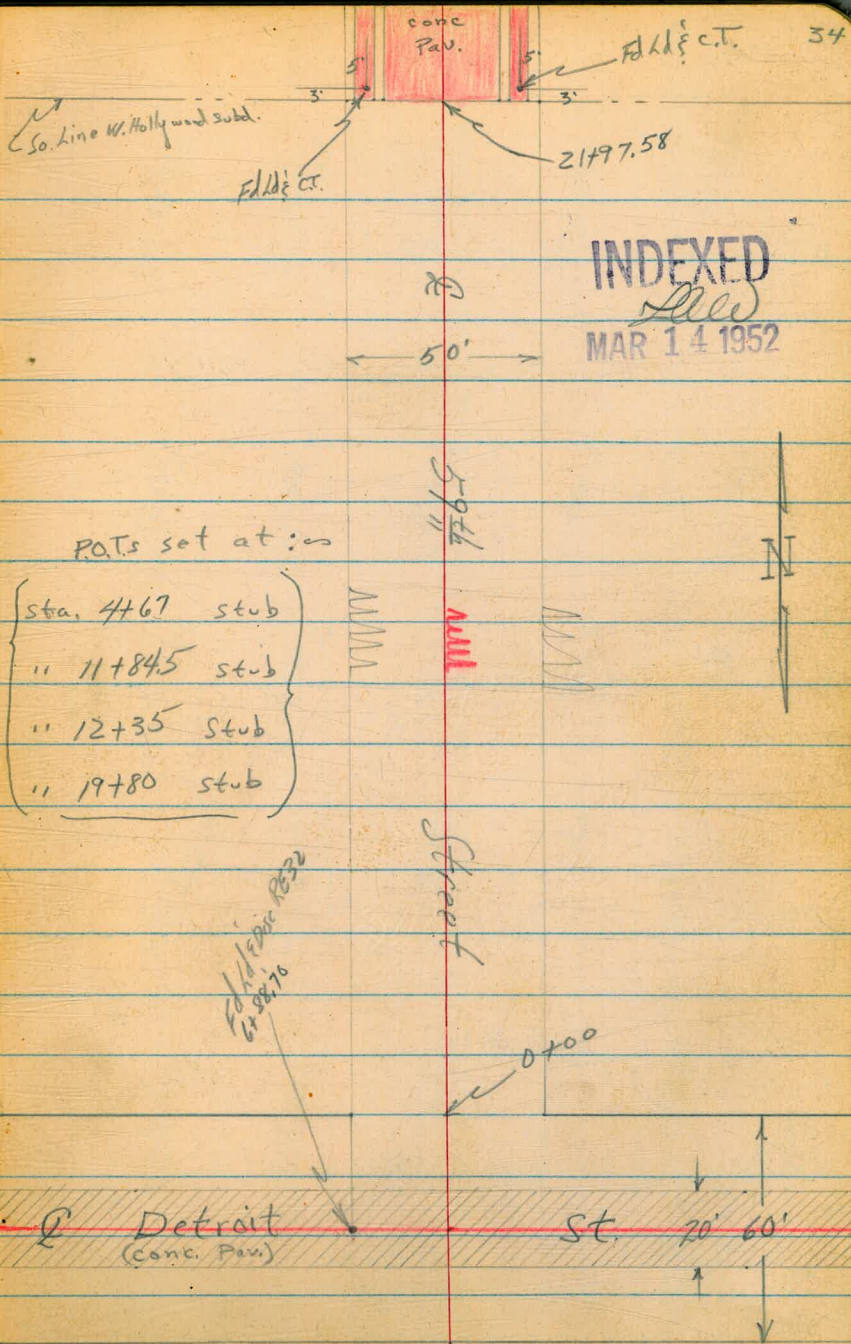 34
conc
Pav.
5'
5'
Fd Ld & C.T.
3'
3'
So. Line W. Hollywood subd.
21+97.58
Fd Ld & C.T.
INDEXED
MAR 14 1952
℄
50'
59th
N
P.O.T.s set at :
sta. 4+67 stub
" 11+84.5 stub
" 12+35 stub
" 19+80 stub
Street
Fd Ld & Disc RE32
6+88.70
0+00
℄ Detroit St. 20' 60'
(conc. Pav.)